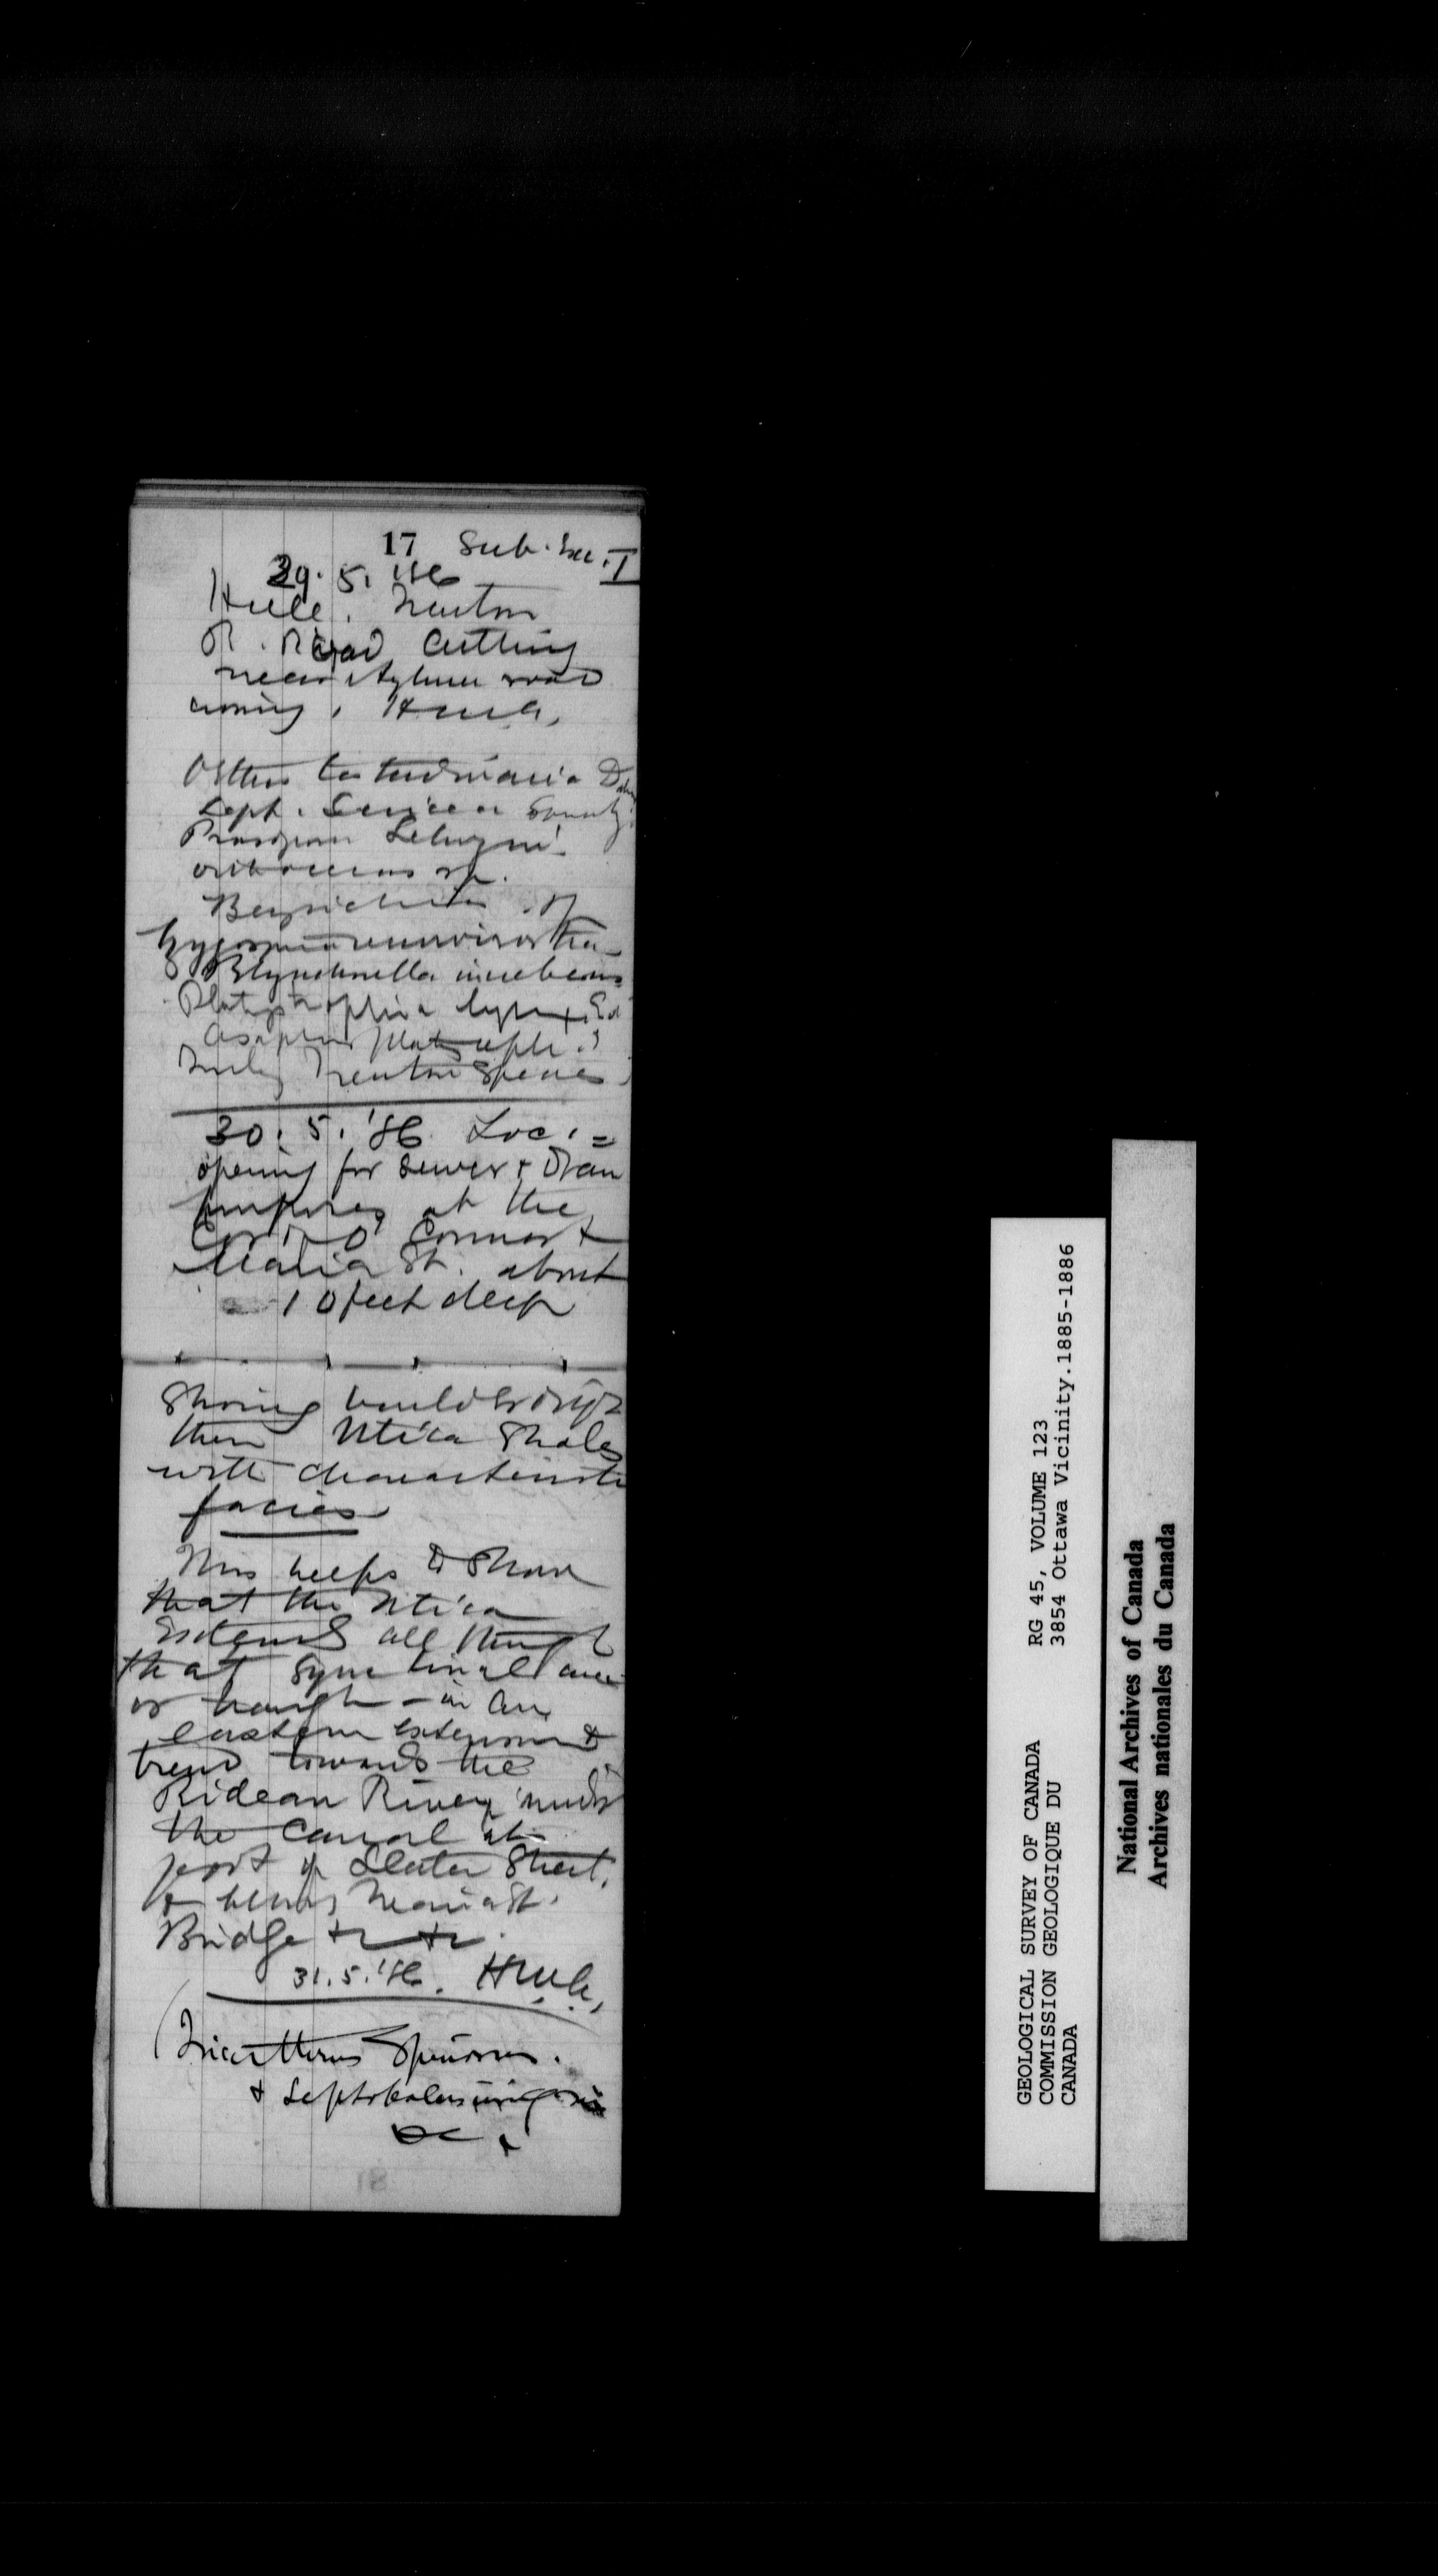 17 Sub. Sec. I
29. 5. '86
Hull. Trenton
R. Road Cutting
near Aylmer road
crossing, H.M.A.
Orthis testudinaria Dalm
Lept. sericea Sowerby
Prasopora Selwyni
orthoceras sp.
Beyrichia sp
Zygospira recurvirostra
Rhynchonella increbescens
Platystrophia lynx, Ed
Asaphus platyceph.?
Truly Trenton species
30. 5. '86 Loc. =
opening for sewer & Drain
purposes at the
Cor. of O'Connor &
Maria St. about
10 feet deep
Showing boulder drift
then Utica Shales
with characteristic
facies
This helps to show
that the Utica
extends all through
that synclinal area
or trough - in an
eastern extension &
trend towards the
Rideau River under
the Canal at
foot of Slater Street,
& Maria St.
Bridge &c &c.
31. 5. '86. H.M.A.
(Triarthrus spinosus.
& Leptobolus insignis
&c
18
GEOLOGICAL SURVEY OF CANADA
COMMISSION GEOLOGIQUE DU
CANADA
RG 45, VOLUME 123
3854 Ottawa Vicinity.1885-1886
National Archives of Canada
Archives nationales du Canada